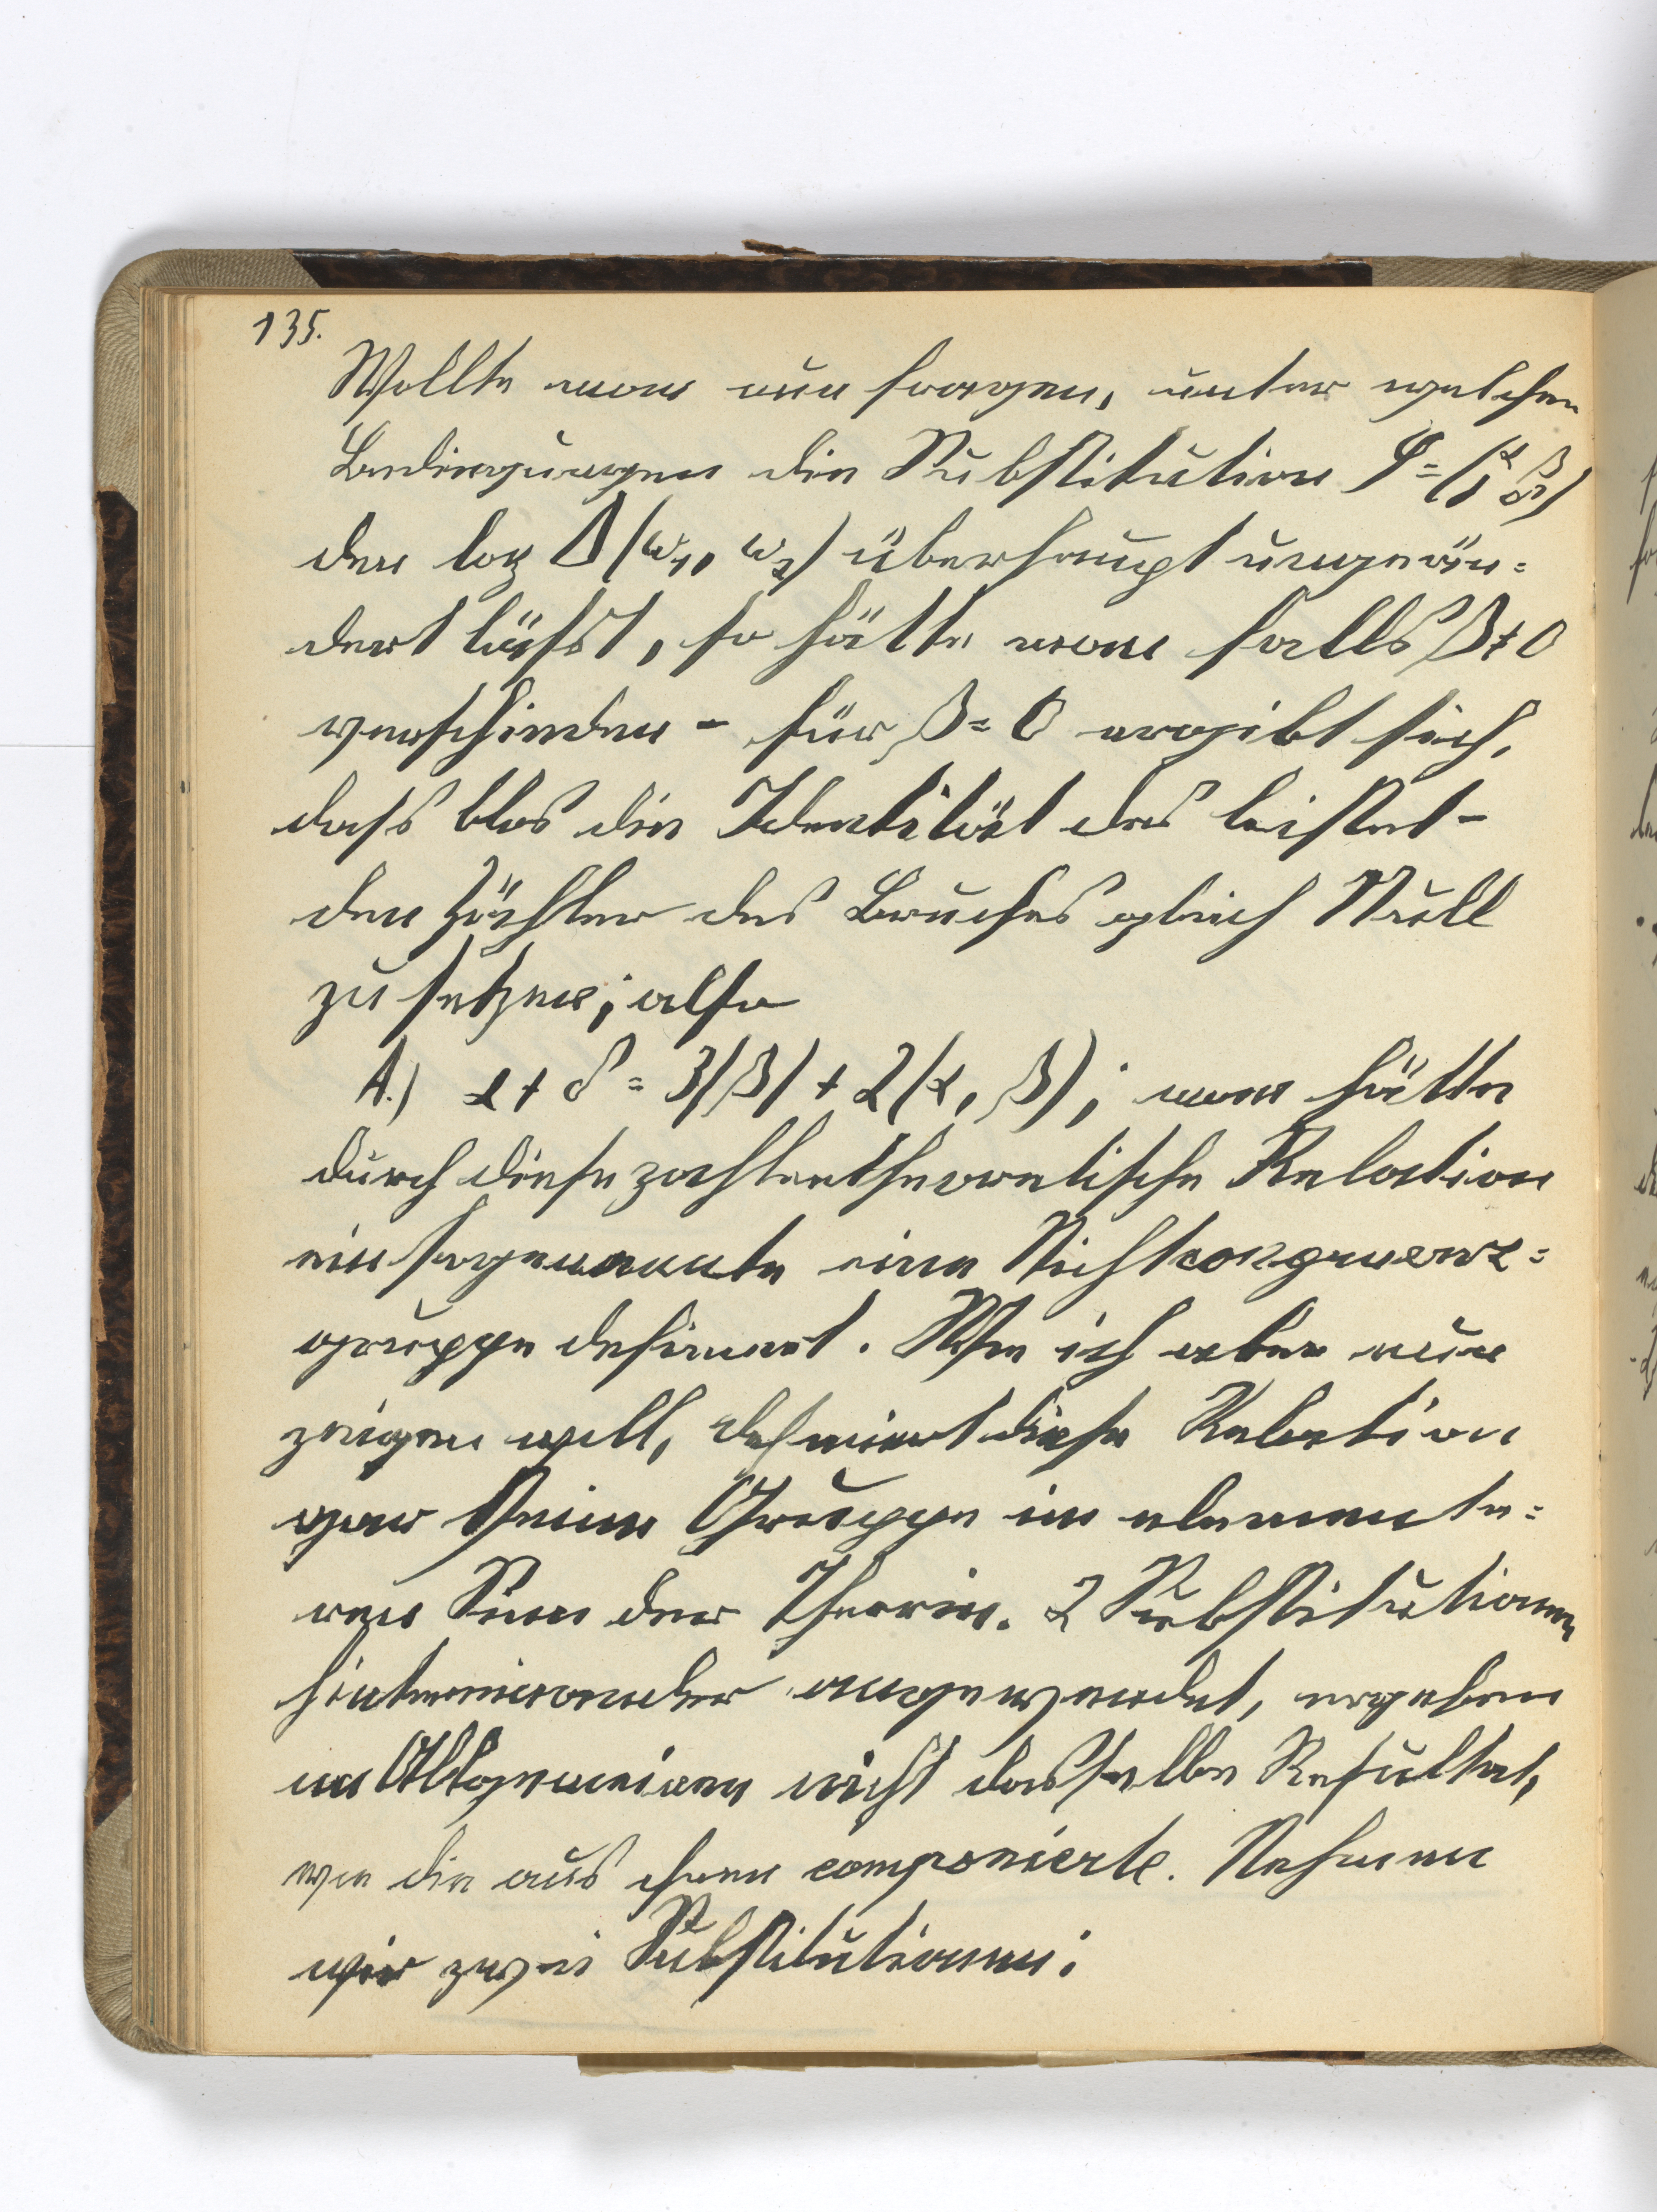 135.
Wollte man nun fragen, unter welchen
Bedingungen die Substitution S = (α β γ δ)
den log Δ(ω₁, ω₂) überhaupt ungeän=
dert läfst, so hätte man falls β ≠ 0
verschieden - für β = 0 ergibt sich,
dafs blos die Identität das leistet -
den Zähler des Bruches gleich Null
zu setzen; also
A.) α + δ = 3(β) + 2(α, β); man hätte
durch diese zahlentheoretische Relation
eine sogenannte eine Nichtkongruenz=
gruppe definiert. Wie ich aber nun
zeigen will, definiert diese Relation
gar keine Gruppe im elementa=
ren Sinne der Theorie. 2 Substitutionen
hintereinander angewendet, ergeben
im Allgemeinen nicht dasselbe Resultat,
wie die aus ihnen componierte. Nehmen
wir zwei Substitutionen: